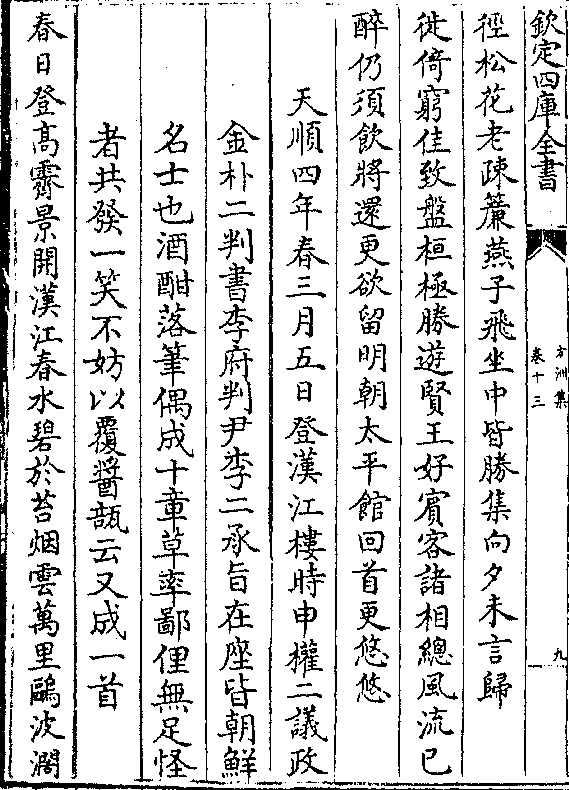 欽定四庫全書
方洲集
卷十三
九
徑松花老疎簾燕子飛坐中皆勝集向夕未言歸
徙倚窮佳致盤桓極勝遊賢王好賓客諸相總風流已
醉仍須飲將還更欲留明朝太平館回首更悠悠
天順四年春三月五日登漢江樓時申權二議政
金朴二判書李府判尹李二承旨在座皆朝鮮
名士也酒酣落筆偶成十章草率鄙俚無足怪
者共發一笑不妨以覆醬瓿云又成一首
春日登高霽景開漢江春水碧於苔烟雲萬里鷗波濶